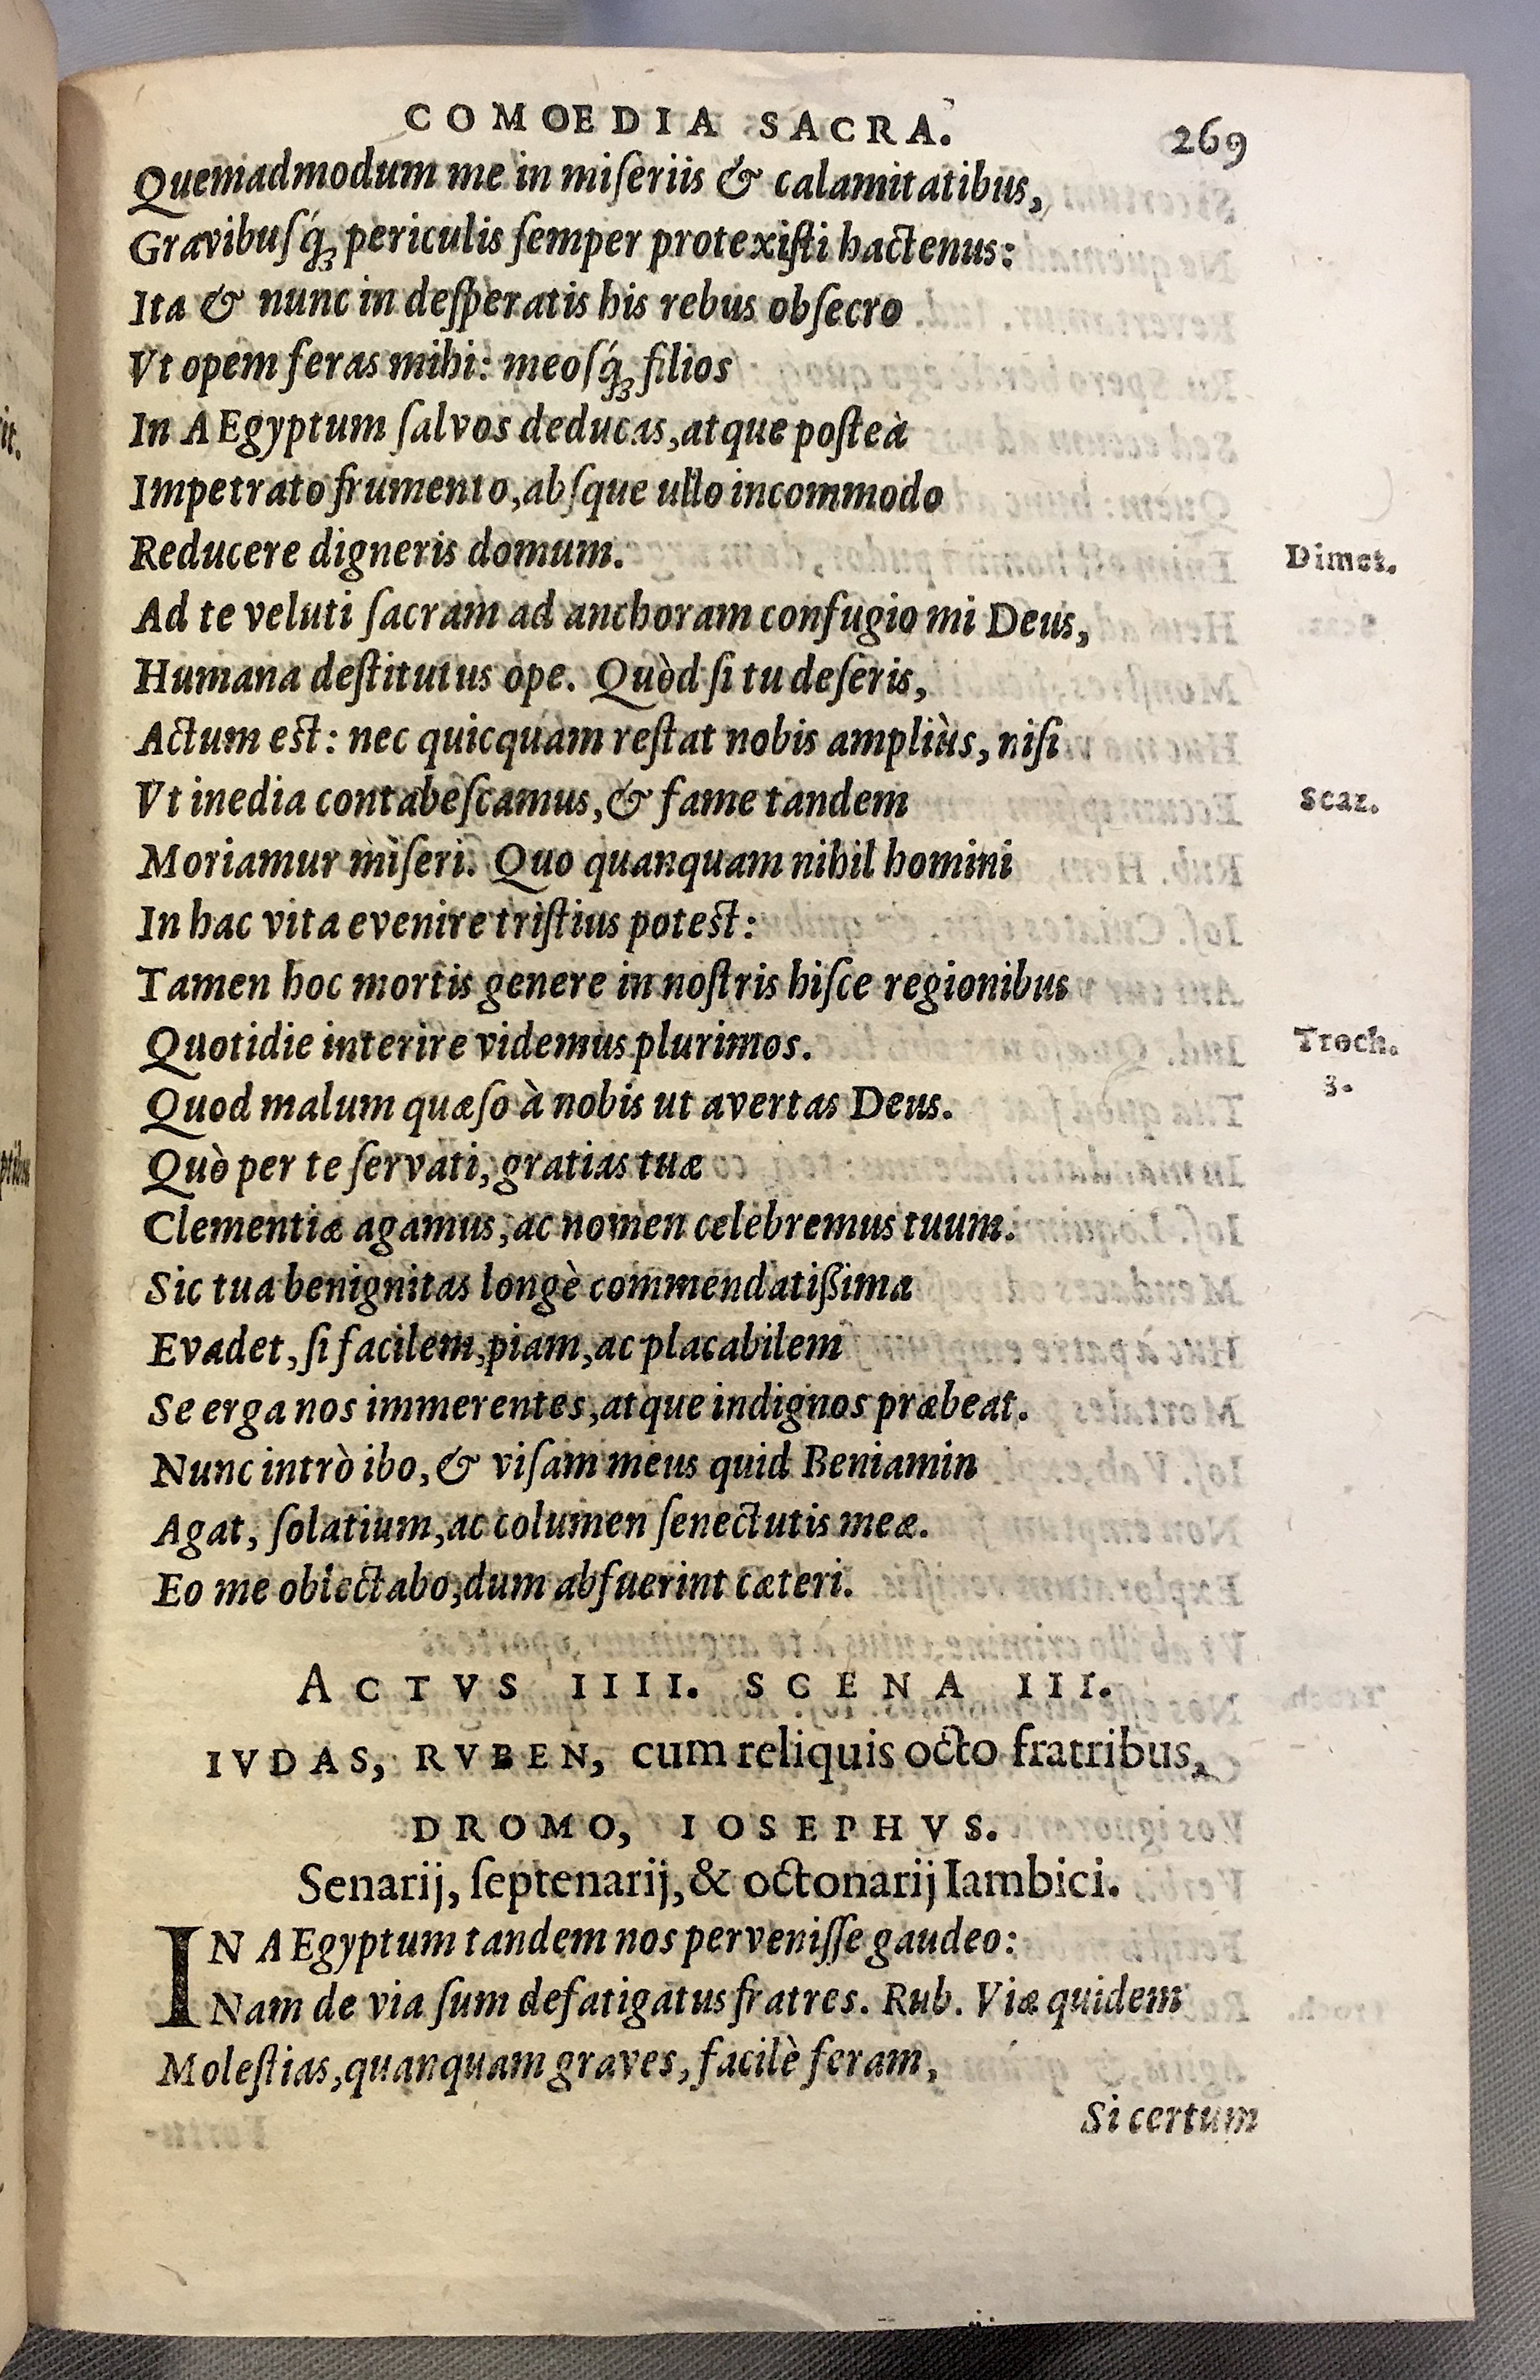 COMOEDIA SACRA. 269
Quemadmodum me in miſeriis & calamitatibus,
Gravibuſq́ꝫ periculis ſemper protexiſti hactenus:
Ita & nunc in deſperatis his rebus obſecro
Vt opem feras mihi: meoſq́ꝫ filios
In AEgyptum ſalvos deducas, atque poſteà
Impetrato frumento, abſque ullo incommodo
Reducere digneris domum. Dimet.
Ad te veluti ſacram ad anchoram confugio mi Deus,
Humana deſtitutus ope. Quòd ſi tu deſeris,
Actum est: nec quicquam reſtat nobis ampliùs, niſi
Vt inedia contabeſcamus, & fame tandem Scaz.
Moriamur miſeri. Quo quanquam nihil homini
In hac vita evenire triſtius potest:
Tamen hoc mortis genere in noſtris hiſce regionibus
Quotidie interire videmus plurimos. Troch.
3.
Quod malum quæſo à nobis ut avertas Deus.
Quò per te ſervati, gratias tuæ
Clementiæ agamus, ac nomen celebremus tuum.
Sic tua benignitas longè commendatißima
Evadet, ſi facilem, piam, ac placabilem
Se erga nos immerentes, atque indignos præbeat.
Nunc intrò ibo, & viſam meus quid Beniamin
Agat, ſolatium, ac columen ſenectutis meæ.
Eo me obiectabo, dum abfuerint cæteri.
ACTVS IIII. SCENA III.
IVDAS, RVBEN, cum reliquis octo fratribus,
DROMO, IOSEPHVS.
Senarij, ſeptenarij, & octonarij Iambici.
IN AEgyptum tandem nos perveniſſe gaudeo:
Nam de via ſum defatigatus fratres. Rub. Viæ quidem
Moleſtias, quanquam graves, facilè feram,
Si certum